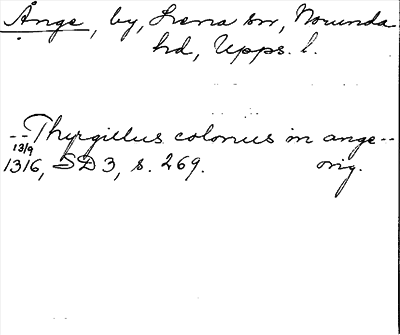 Ånge, by, Lena sn, Norunda
hd, Upps. l.
--Thyrgillus colonus in ange--
13/9
1316, SD 3, s. 269. orig.